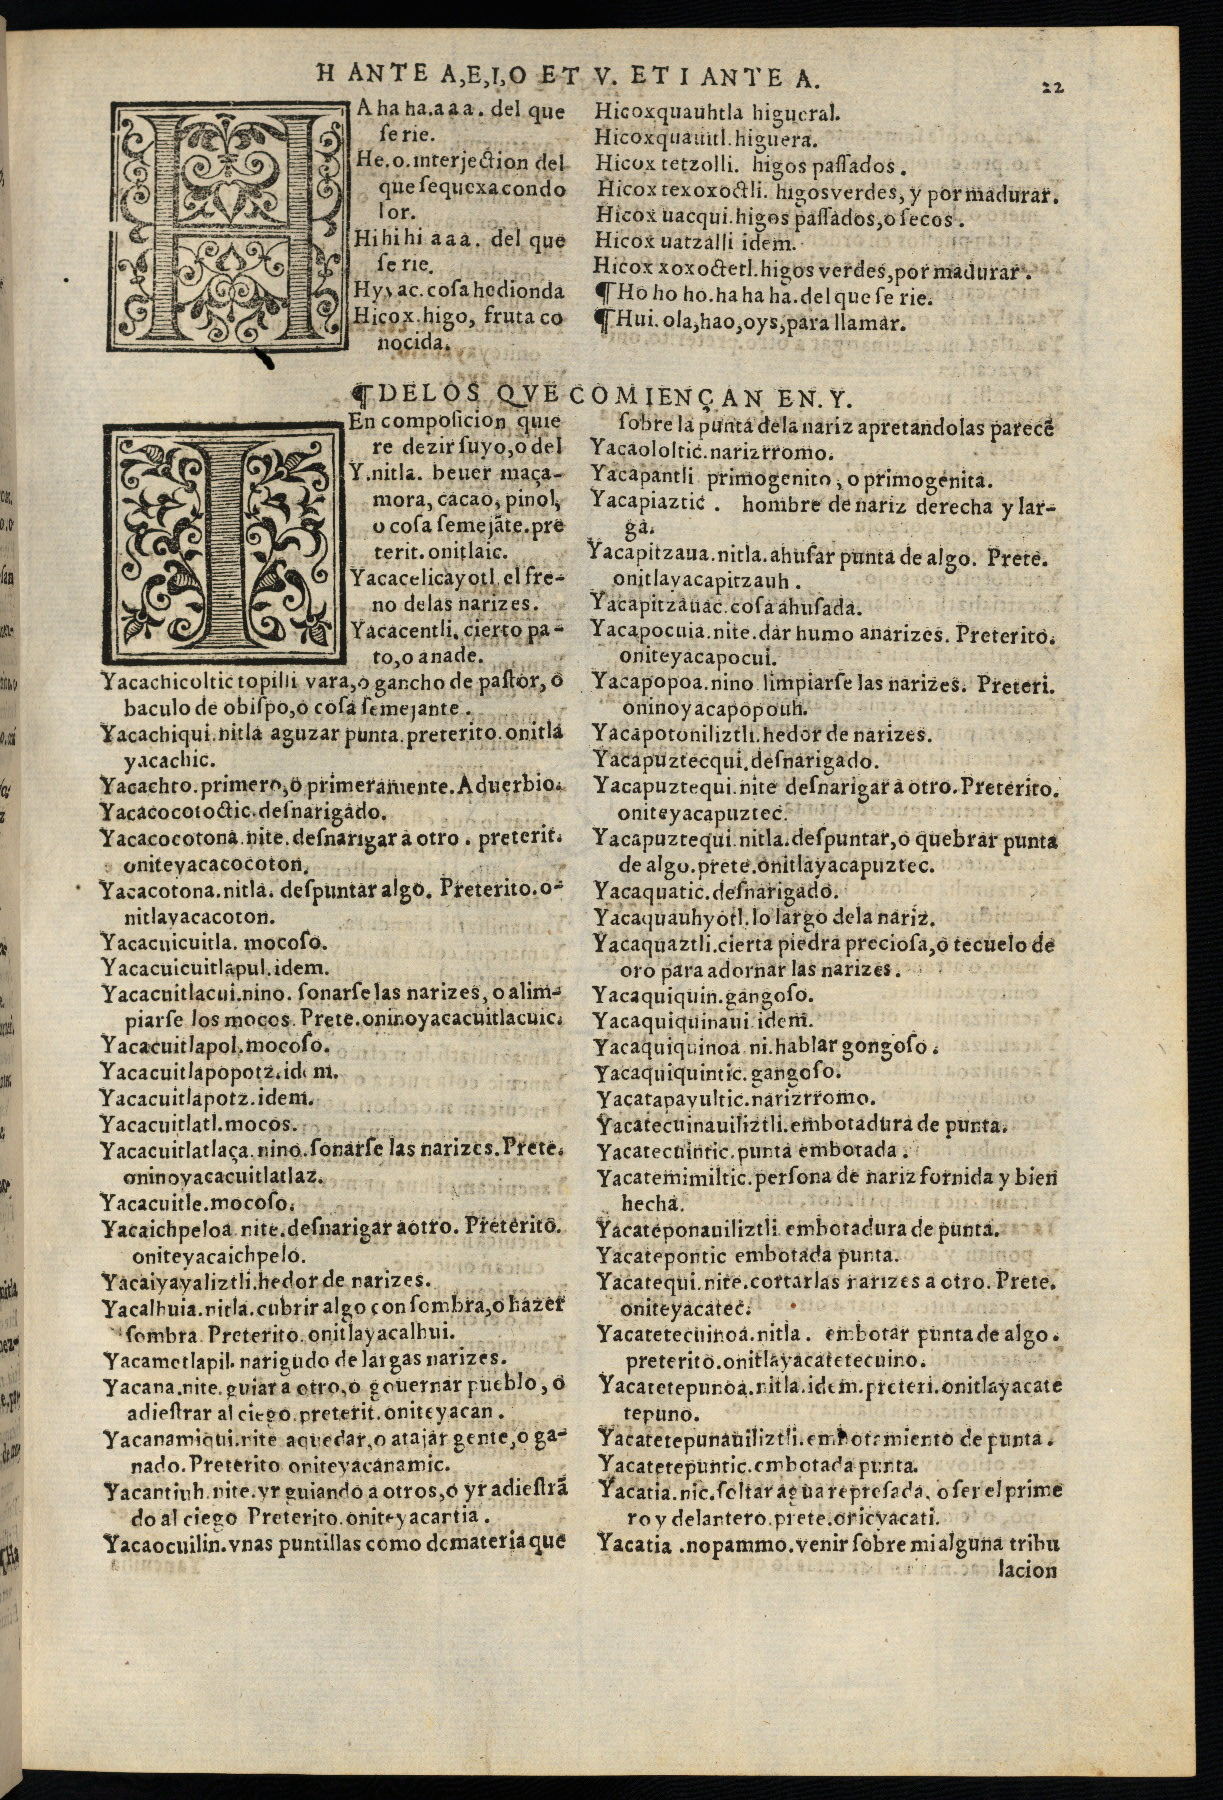 H ANTE A,E,I,O ET V. ET I ANTE A.
22
HA ha ha.a a a. del que
se rie.
He.o.interjection del
que sequexa con do
lor.
Hi hi hi a a a. del que
se rie.
Hyyac.cosa hedionda
Hicox.higo, fruta co
nocida.
Hicoxquauhtla higueral.
Hicoxquauitl.higuera.
Hicox tetzolli. higos passados.
Hicox texoxoctli. higos verdes, y por madurar.
Hicox uacqui.higos passados,o secos.
Hicox uatzalli idem.
Hicox xoxoctetl.higos verdes,por madurar.
¶Ho ho ho.ha ha ha.del que se rie.
¶Hui.ola,hao,oys,para llamar.
¶DELOS QVE COMIENÇAN EN.Y.
IEn composicion quie
re dezir suyo,o del
Y.nitla. beuer maça-
mora, cacao, pinol,
o cosa semejãte.pre
terit.onitlaic.
Yacacelicayotl el fre-
no delas narizes.
Yacacentli. cierto pa-
to,o anade.
Yacachicoltic topilli vara,o gancho de pastor, o
baculo de obispo,o cosa semejante.
Yacachiqui.nitla aguzar punta.preterito.onitla
yacachic.
Yacachto.primero,o primeramente.Aduerbio.
Yacacocotoctic.desnarigado.
Yacacocotona.nite.desnarigar a otro. preterit.
oniteyacacocoton.
Yacacotona.nitla. despuntar algo. Preterito.o-
nitlayacacoton.
Yacacuicuitla. mocoso.
Yacacuicuitlapul.idem.
Yacacuitlacui.nino. sonarse las narizes, o alim-
piarse los mocos. Prete.oninoyacacuitlacuic.
Yacacuitlapol.mocoso.
Yacacuitlapopotz.idem.
Yacacuitlapotz.idem.
Yacacuitlatl.mocos.
Yacacuitlatlaça.nino.sonarse las narizes. Prete.
oninoyacacuitlatlaz.
Yacacuitle.mocoso.
Yacaichpeloa.nite.desnarigar a otro. Preterito.
oniteyacaichpelo.
Yacaiyayaliztli.hedor de narizes.
Yacalhuia.nitla.cubrir algo con sombra,o hazer
sombra. Preterito.onitlayacalhui.
Yacametlapil. narigudo de largas narizes.
Yacana.nite.guiar a otro,o gouernar pueblo, o
adiestrar al ciego.preterit.oniteyacan.
Yacanamiqui.nite aquedar,o atajar gente,o ga-
nado. Preterito oniteyacanamic.
Yacantiuh.nite.yr guiando a otros,o yr adiestrã
do al ciego Preterito.oniteyacartia.
Yacaocuilin.vnas puntillas como de materia que
sobre la punta dela nariz apretandolas parecẽ
Yacaololtic.narizrromo.
Yacapantli primogenito, o primogenita.
Yacapiaztic. hombre de nariz derecha y lar-
ga.
Yacapitzaua.nitla.ahusar punta de algo. Prete.
onitlayacapitzauh.
Yacapitzauac.cosa ahusada.
Yacapocuia.nite.dar humo a narizes. Preterito.
oniteyacapocui.
Yacapopoa.nino limpiarse las narizes. Preteri.
oninoyacapopouh.
Yacapotoniliztli.hedor de narizes.
Yacapuztecqui.desnarigado.
Yacapuztequi.nite desnarigar a otro. Preterito.
oniteyacapuztec.
Yacapuztequi.nitla.despuntar,o quebrar punta
de algo.prete.onitlayacapuztec.
Yacaquatic.desnarigado.
Yacaquauhyotl.lo largo dela nariz.
Yacaquaztli.cierta piedra preciosa,o tecuelo de
oro para adornar las narizes.
Yacaquiquin.gangoso.
Yacaquiquinaui.idem.
Yacaquiquinoa.ni.hablar gongoso.
Yacaquiquintic.gangoso.
Yacatapayultic.narizrromo.
Yacatecuinauiliztli.embotadura de punta.
Yacatecuintic.punta embotada.
Yacatemimiltic.persona de nariz fornida y bien
hecha.
Yacateponauiliztli embotadura de punta.
Yacatepontic embotada punta.
Yacatequi.nite.cortar las narizes a otro. Prete.
oniteyacatec.
Yacatetecuinoa.nitla. embotar punta de algo.
preterito.onitlayacatetecuino.
Yacatetepunoa.nitla.idem.preteri.onitlayacate
tepuno.
Yacatetepunauiliztli.embotamiento de punta.
Yacatetepuntic.embotada punta.
Yacatia.nic.soltar agua represada, o ser el prime
ro y delantero.prete.oricyacati.
Yacatia.nopammo.venir sobre mi alguna tribu
lacion